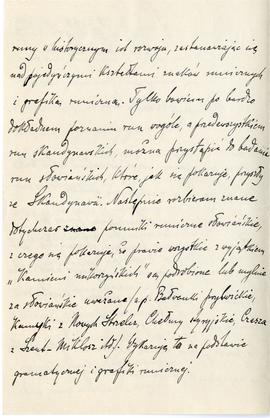 runy w historycznym ich rozwoju, zastanawiając się
nad pojedyńczymi kształtami znaków runicznych
i grafiką runiczną. Tylko bowiem po bardzo
dokładnem poznaniu run wogóle, a przedewszystkiem
run skandynawskich, można przystąpić do badania
run słowiańskich, które, jak się pokazuje, przyszły
ze Skandynawii. Następnie rozbieram znane
dotychczas pomniki runiczne słowiańskie,
z czego się pokazuje, że prawie wszystkie z wyjątkiem
"Kamieni mikorzyńskich" są podrobione lub mylnie
za słowiańskie uważane np. Bałwanki prylwickie,
Kamyki z Nowych Strzelec, Hełmy styryjskie, Czasza
z Szent-Miklosz itd. Wykazuję to na podstawie
gramatycznej i grafiki runicznej.